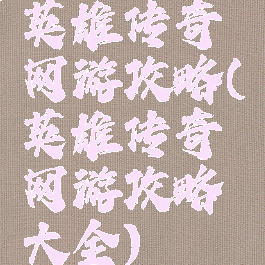 英雄传奇
网游攻略(
英雄传奇
网游攻略
大全)